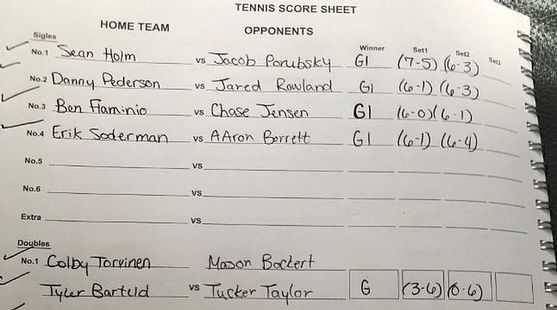 TENNIS SCORE SHEET
HOME TEAM OPPONENTS
Sigles Winner Set1 Set2 Set3
No.1 Sean Holm vs Jacob Porubsky GI (7-5) (6-3)
No.2 Danny Pederson vs Jared Rowland GI (6-1) (6-3)
No.3 Ben Flaminio vs Chase Jensen GI (6-0) (6-1)
No.4 Erik Soderman vs AAron Barrett GI (6-1) (6-4)
No.5 vs
No.6 vs
Extra vs
Doubles
No.1 Colby Torvinen Mason Bockert
Tyler Barteld vs Tucker Taylor G (3-6) (0-6)